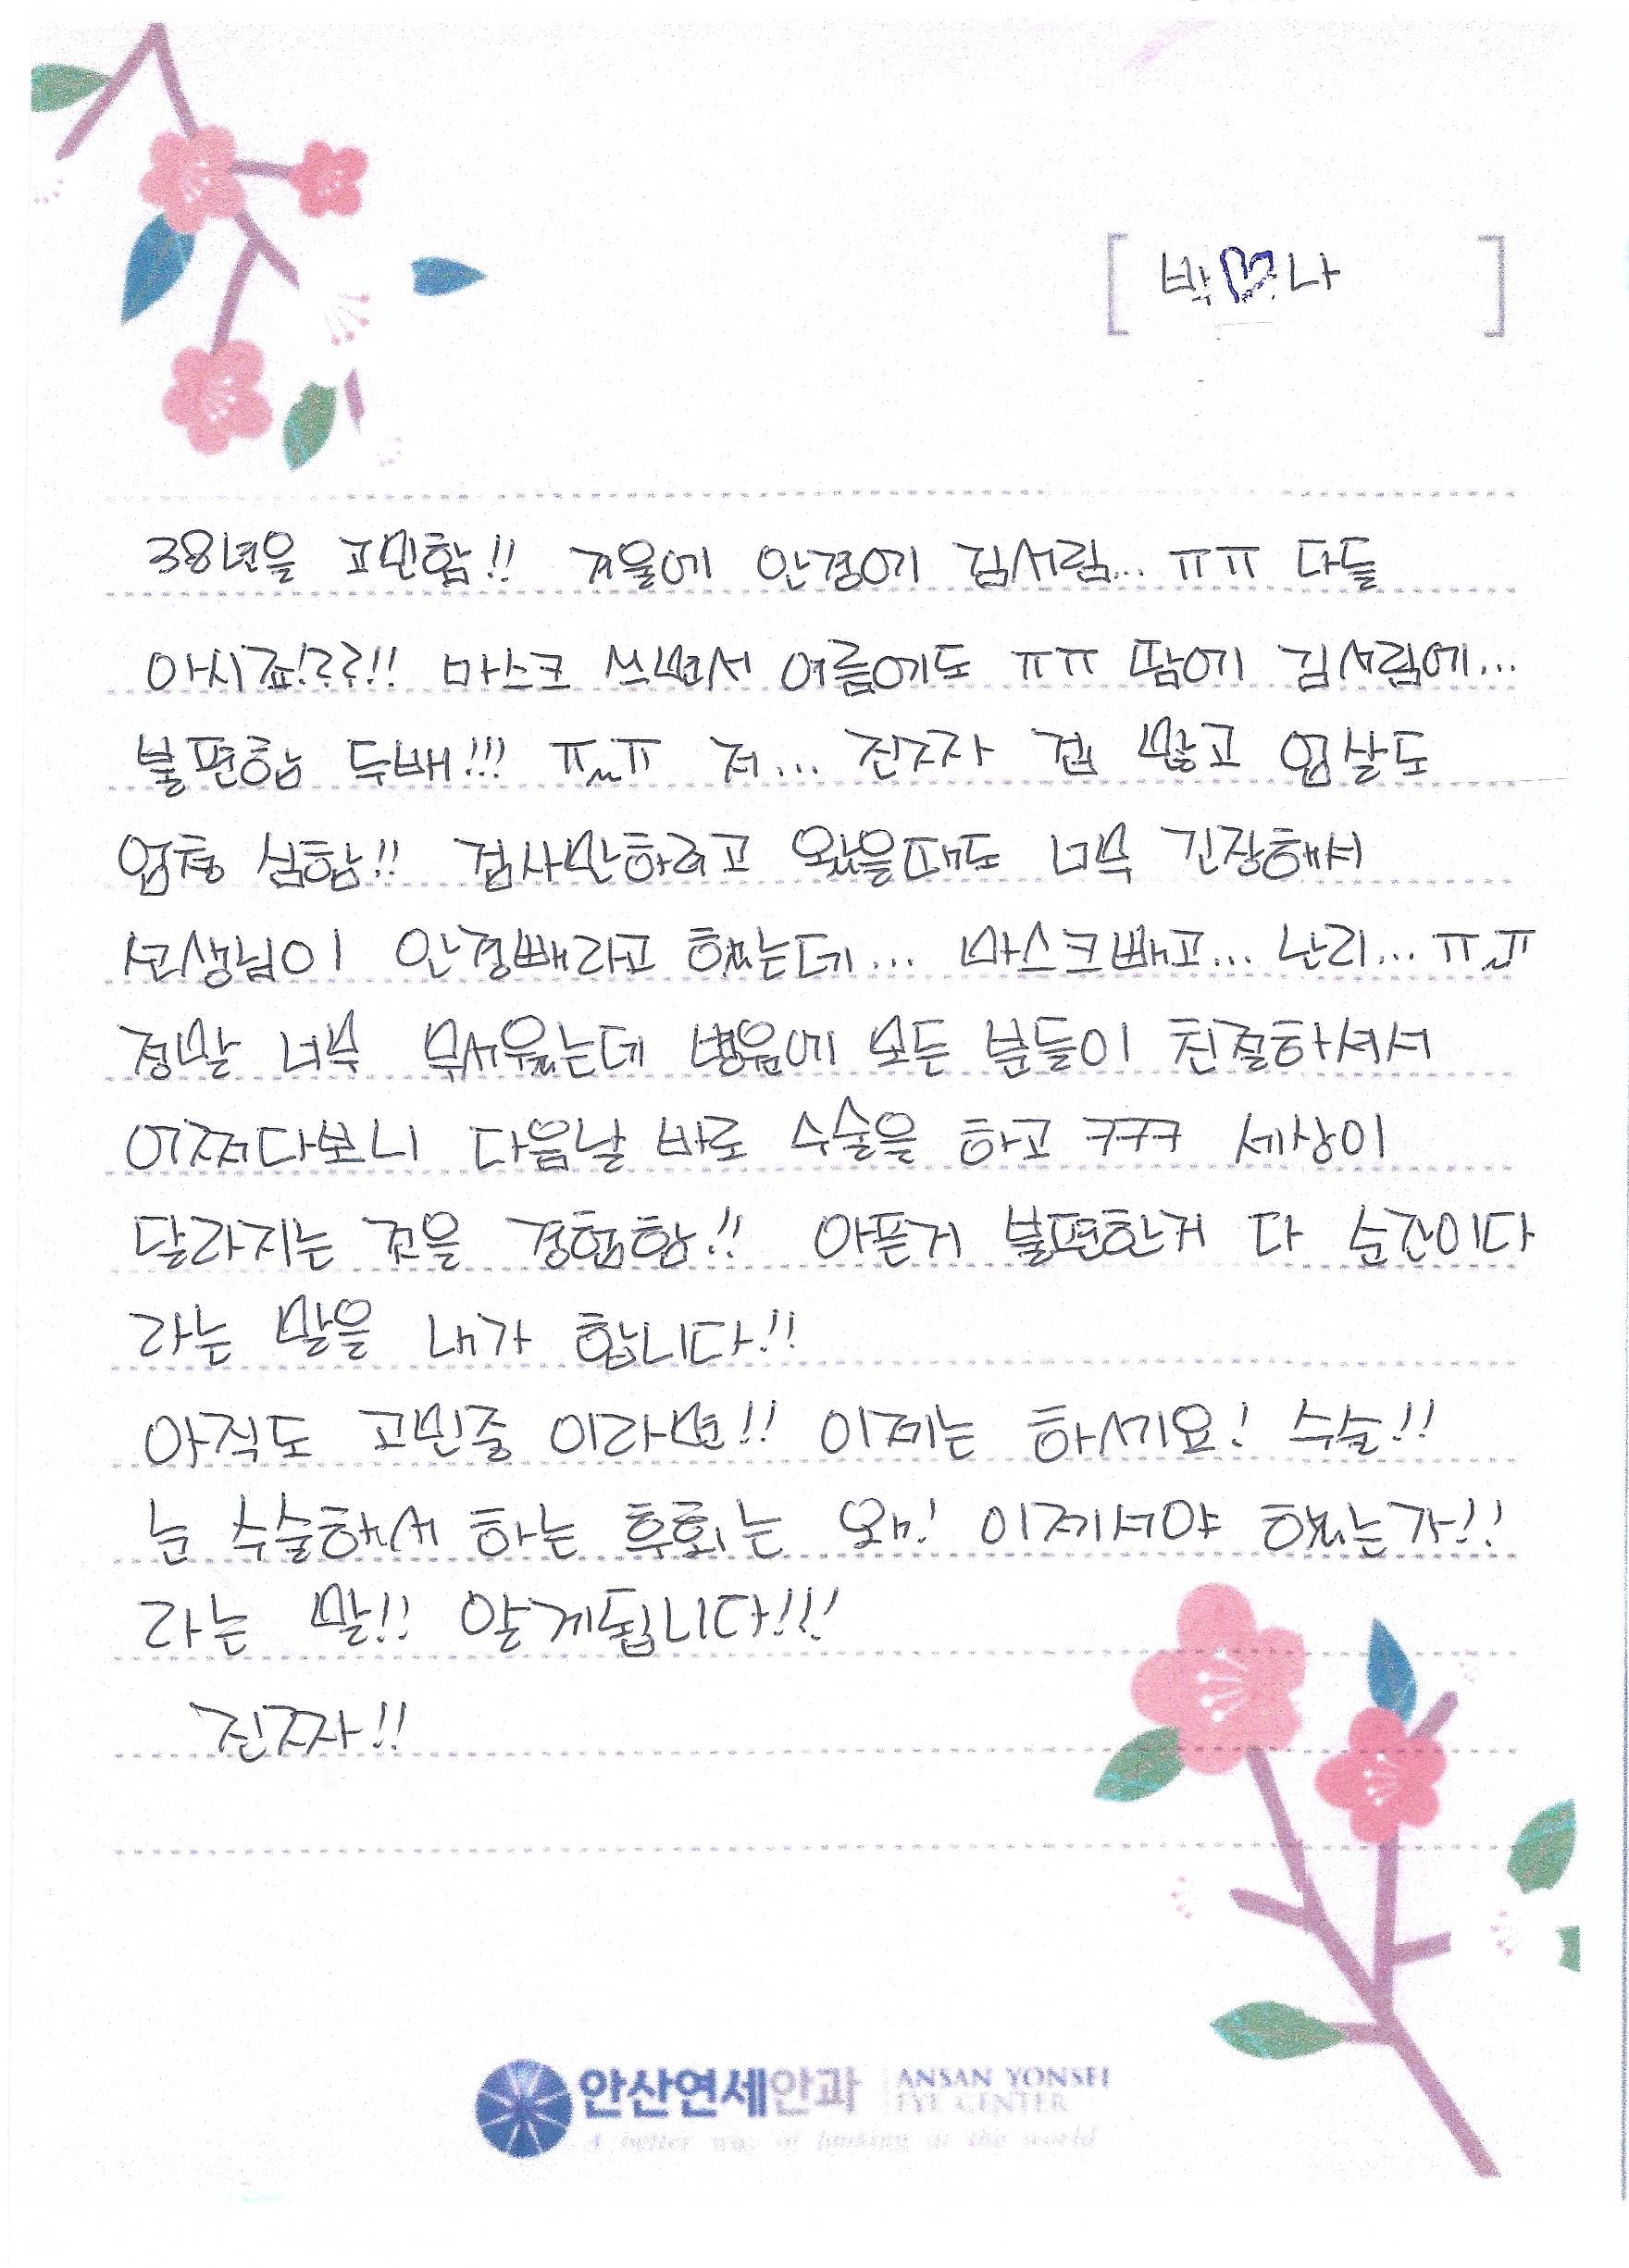 [ 박♡나 ]
38년을 고민함!! 겨울에 안경에 김서림... ㅠㅠ 다들
아시죠!??!! 마스크 쓰면서 여름에도 ㅠㅠ 땀에 김서림에...
불편함 두배!!! ㅠㅠ 저... 진짜 겁 많고 엄살도
엄청 심함!! 검사만하려고 왔을때도 너무 긴장해서
선생님이 안경빼라고 했는데... 마스크빼고... 난리... ㅠㅠ
정말 너무 무서웠는데 병원에 모든 분들이 친절하셔서
어쩌다보니 다음날 바로 수술을 하고 ㅋㅋㅋ 세상이
달라지는 것을 경험함!! 아픈거 불편한거 다 순간이다
라는 말을 내가 합니다!!
아직도 고민중 이라면!! 이제는 하세요! 수술!!
눈 수술해서 하는 후회는 왜! 이제서야 했는가!!
라는 말!! 알게됩니다!!!
진짜!!
안산연세안과 ANSAN YONSEI
EYE CENTER
A better way of looking at the world